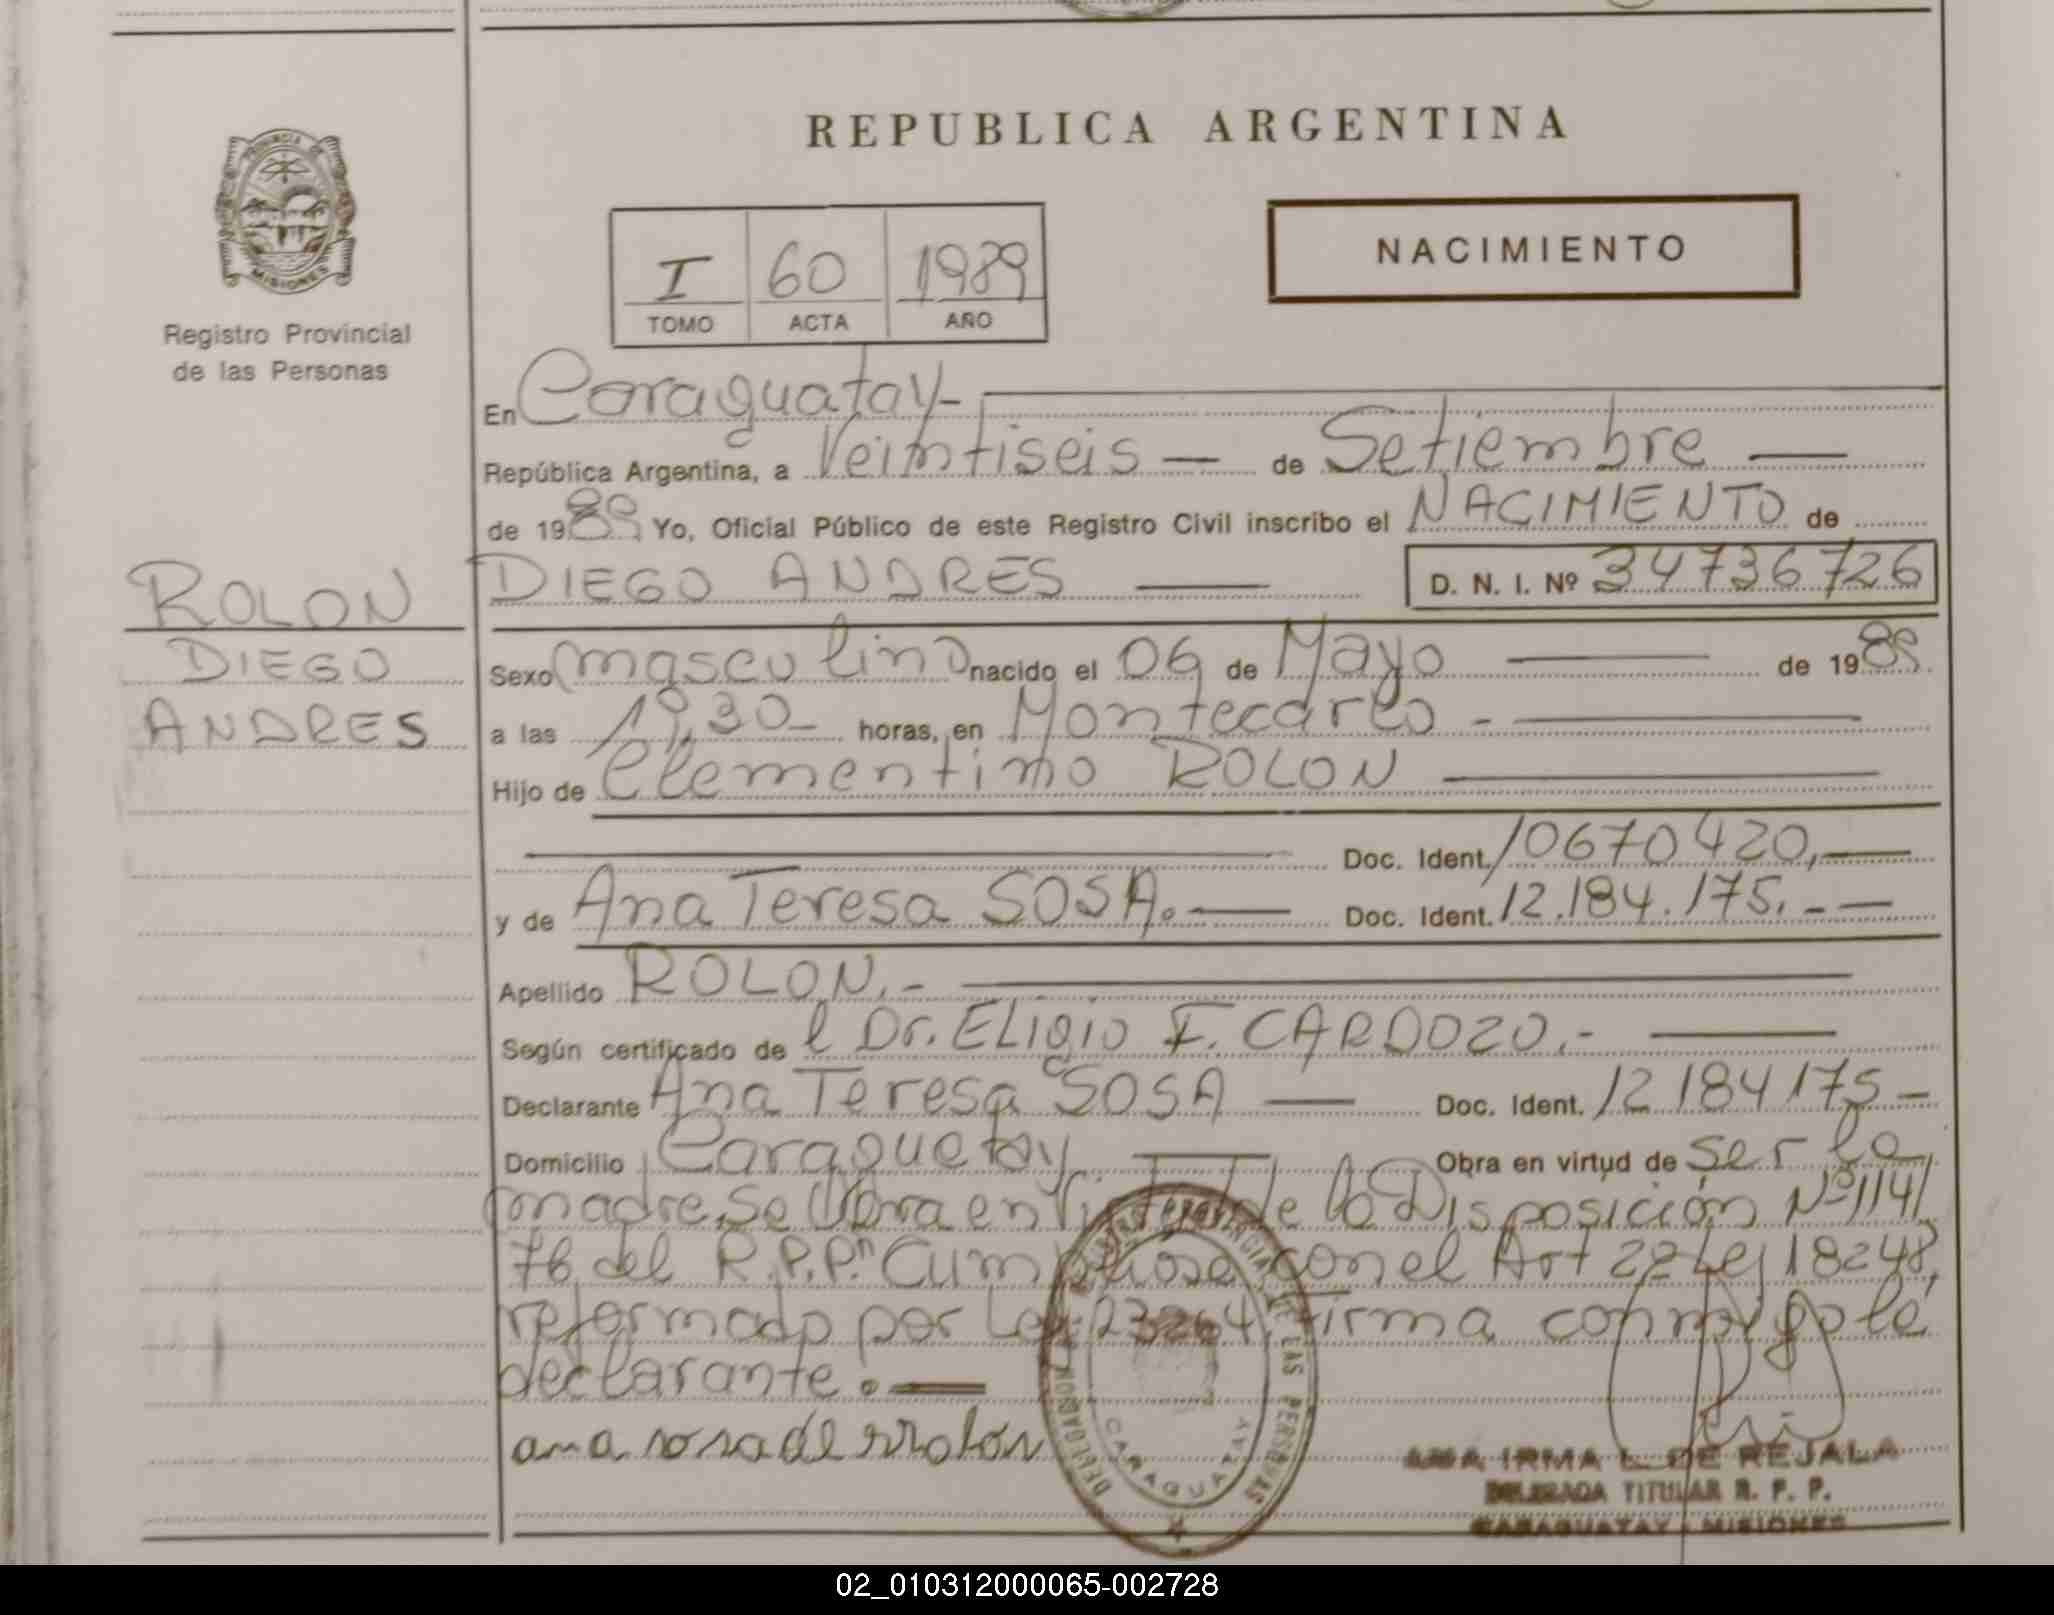 REPUBLICA ARGENTINA
PROVINCIA DE
MISIONES
Registro Provincial
de las Personas
I 60 1989
TOMO ACTA AÑO
NACIMIENTO
En Caraguatay-
República Argentina, a Veintiseis — de Setiembre —
de 1989 Yo, Oficial Público de este Registro Civil inscribo el NACIMIENTO de
ROLON
DIEGO
ANDRES
DIEGO ANDRES — D. N. I. Nº 34736726
Sexo masculino nacido el 06 de Mayo — de 1989.
a las 19,30- horas, en Montecarlo -
Hijo de Clementino ROLON —
Doc. Ident. 10670420,—
y de Ana Teresa SOSA.— Doc. Ident. 12.184.175.-—
Apellido ROLON.-
Según certificado de l Dr. ELigio F. CARDOZO.-
Declarante Ana Teresa SOSA — Doc. Ident. 12184175-
Domicilio Caraguatay — Obra en virtud de ser la
madre. Se Obra en Virtud de la Disposición Nº 114/
76 del R.P.P. Cumpliose con el Art 22 Ley 18248,
reformado por Ley 23264. Firma conmigo la
declarante.=
ana sosa de rrolon
DELEGACION REGISTRO PROVINCIAL DE LAS PERSONAS
CARAGUATAY
ANA IRMA L. DE REJALA
DELEGADA TITULAR R. P. P.
CARAGUATAY - MISIONES
02_010312000065-002728